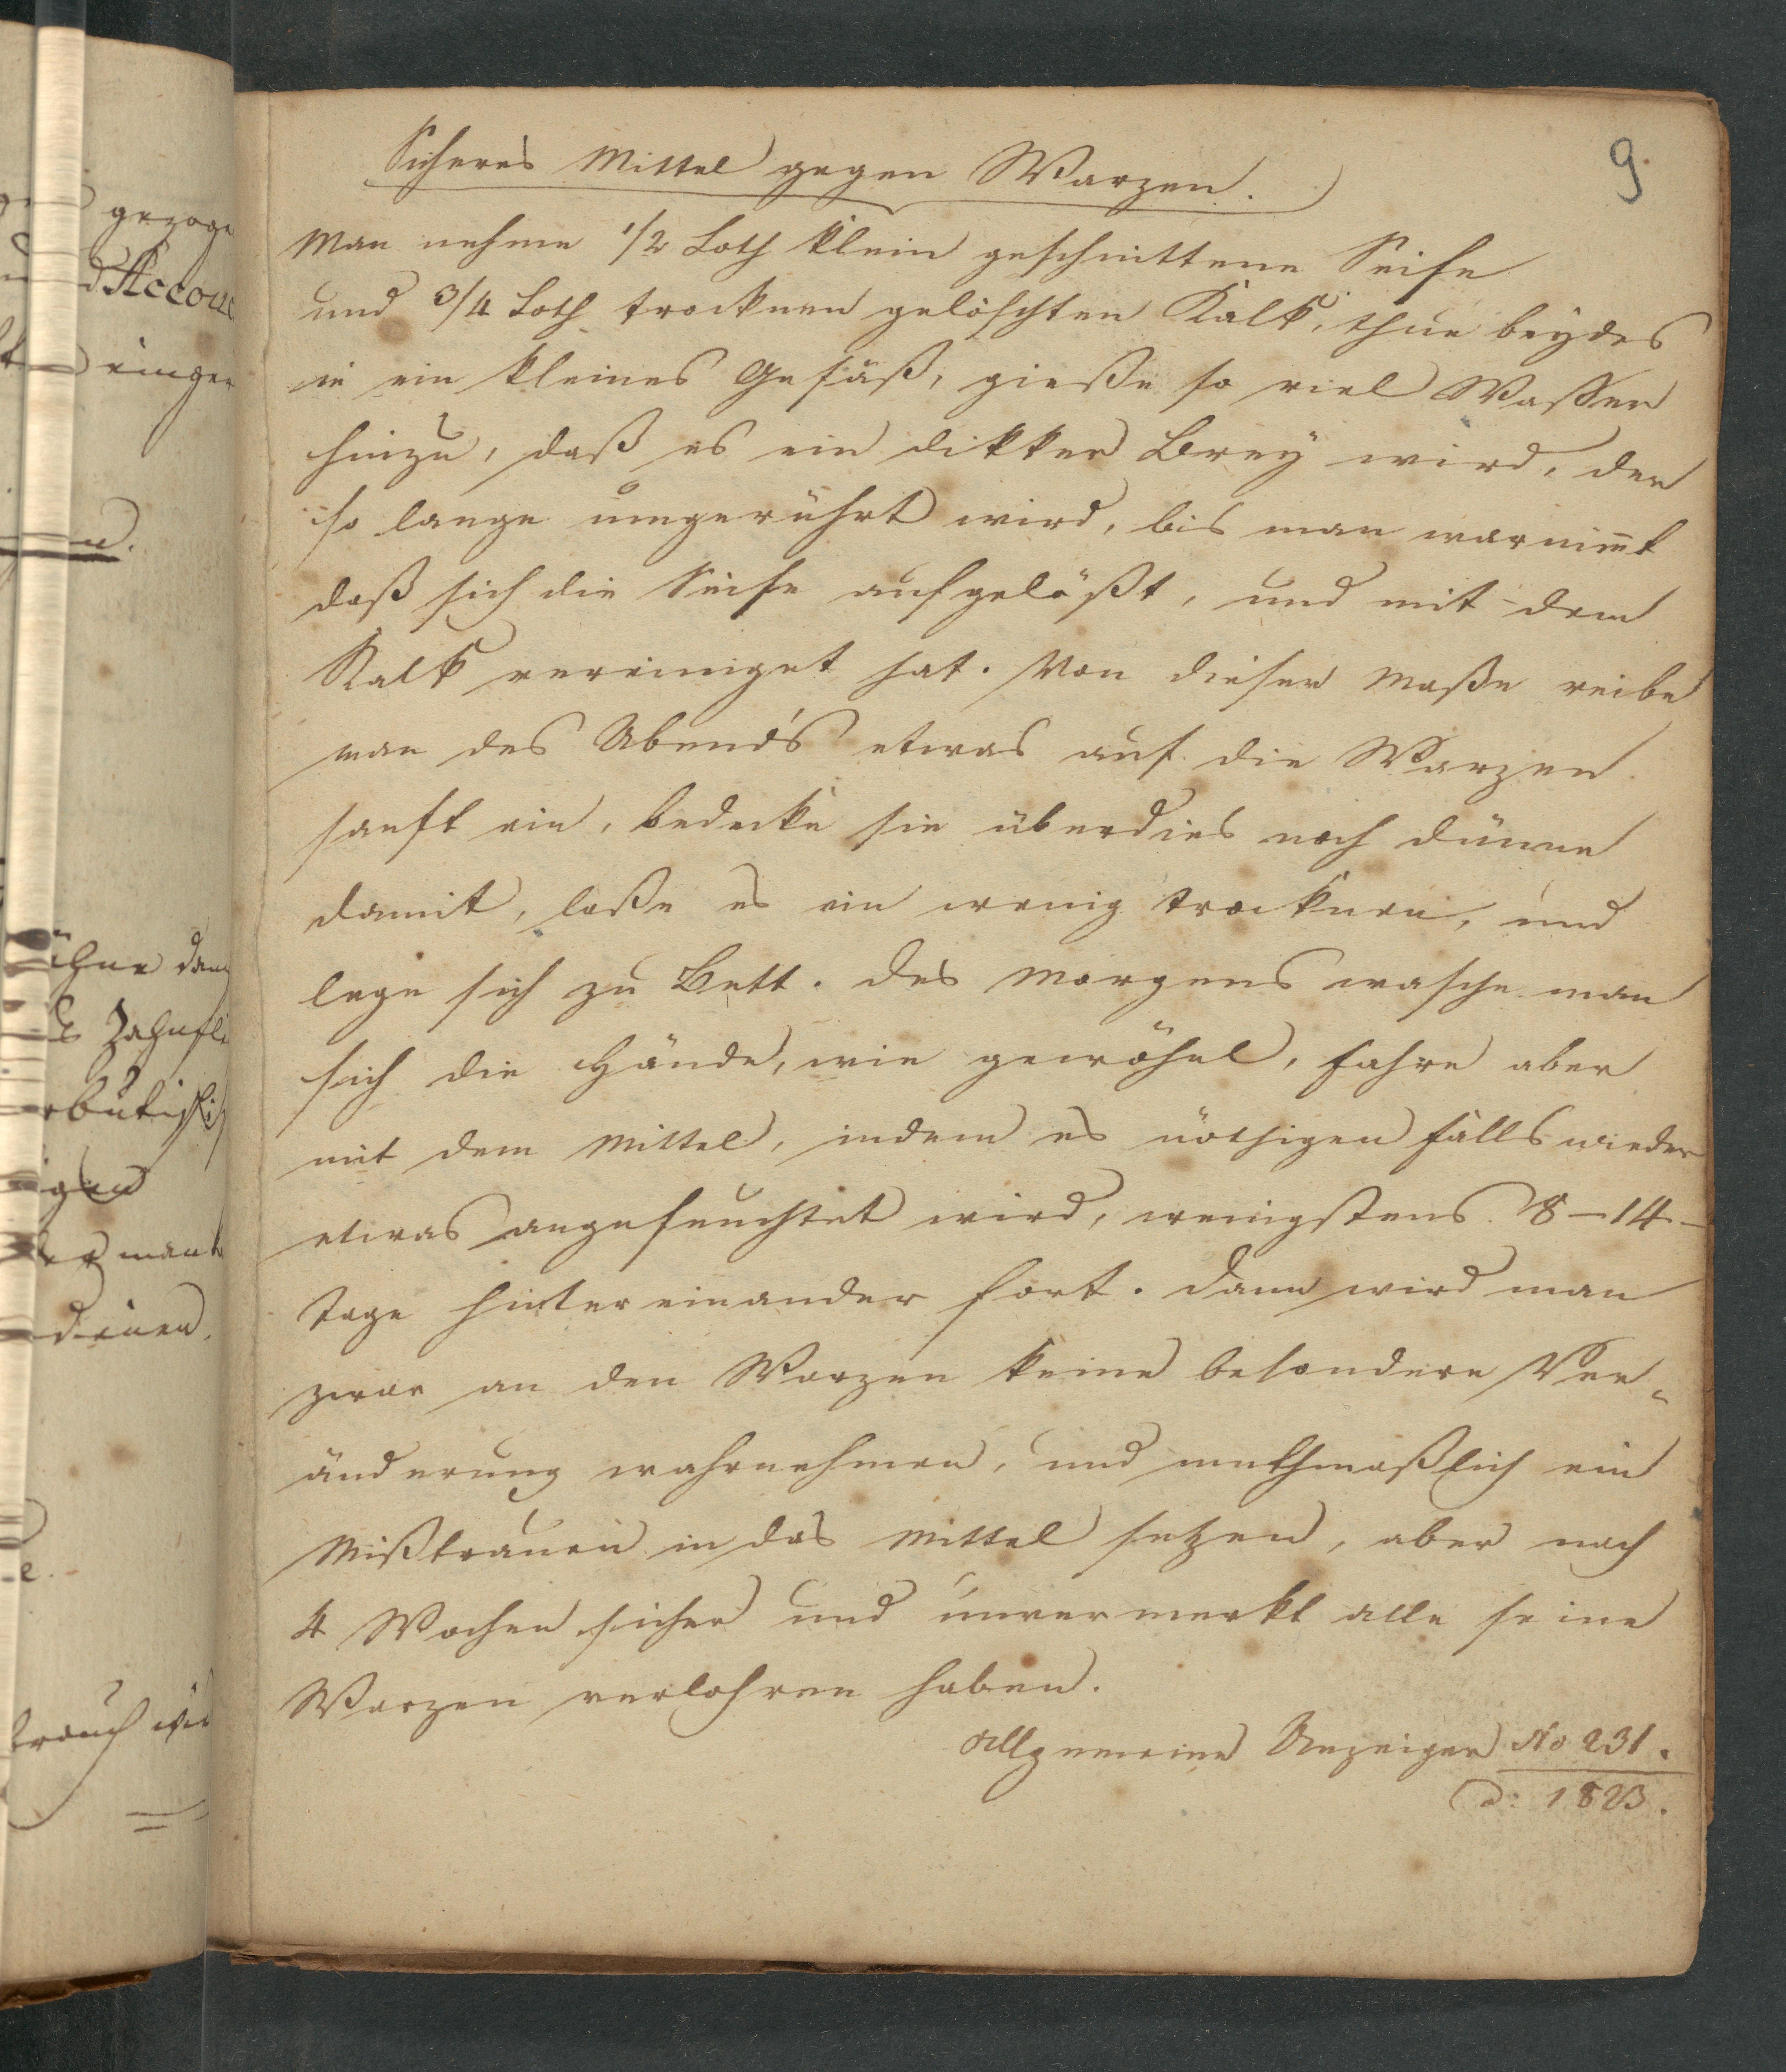 9
Sicheres Mittel gegen Warzen.
Man nehme 1/2 Loth klein geschnittene Seife
und 3/4 Loth trocknen gelöschten Kalk, thue beydes
in ein kleines Gefäß, gieße so viel Wasser
hinzu, daß es ein dikker Brey wird, der
so lange umgerührt wird, bis man warnim̅t
daß sich die Seife aufgelößt, und mit dem
Kalk vereiniget hat. Von dieser Maße reibe
man des Abends etwas auf die Warzen
sanft ein, bedecke sie überdies noch dünne
damit, laße es ein wenig trocknen, und
lege sich zu Bett. Des Morgens wasche man
sich die Hände, wie gewöhnl, fahre aber
mit dem Mittel, indem es nöthigen falls wieder
etwas angefeuchtet wird, wenigstens 8-14-
Tage hinter einander fort. Dann wird man
zwar an den Warzen keine besondere Ver-
änderung wahrnehmen, und muthmaßlich ein
Mißtrauen in das Mittel setzen, aber nach
4 Wochen sicher und unvermerkt alle seine
Warzen verlohren haben.
Allgemeine Anzeiger No 231.
d: 1823.